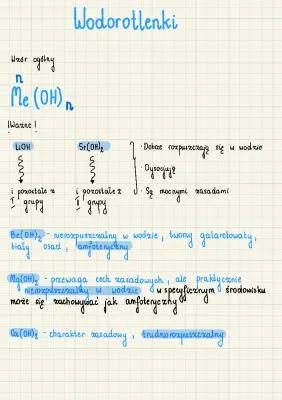 Wodorotlenki
Wzór ogólny
n
Me(OH)n
!Ważne!
LiOH
Sr(OH)₂
· Dobrze rozpuszczają się w wodzie
· Dysocjują
· Są mocnymi zasadami
i pozostałe z I grupy
i pozostałe z II grupy
Be(OH)₂ - nierozpuszczalny w wodzie, tworzy galaretowaty,
biały osad, amfoteryczny
Mg(OH)₂ - przewaga cech zasadowych, ale praktycznie
nierozpuszczalny w wodzie w specyficznym środowisku
może się zachowywać jak amfoteryczny
Ca(OH)₂ - charakter zasadowy, trudnorozpuszczalny